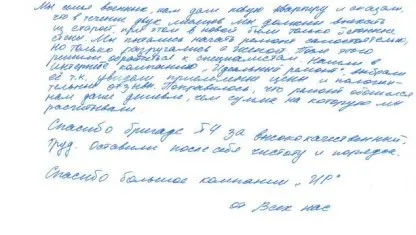 Мы семья военных, нам дали новую квартиру и сказали,
что в течении двух месяцев мы должны выехать
из старой, при этом в новой были только бетонные
стены. Мы пытались начать самостоятельно,
но только разругались с женой. После этого
решили обратится к специалистам. Нашли в
интернете компанию "Идеальный ремонт", выбрали
её т.к. увидели приемлемые цены и положи-
тельные отзывы. Понравилось, что ремонт обошелся
нам даже дешевле, чем сумма на которую мы
рассчитывали.
Спасибо бригаде 54 за высококачественный
труд. Оставили после себя чистоту и порядок.
Спасибо большое компании "ИР"
от Всех нас